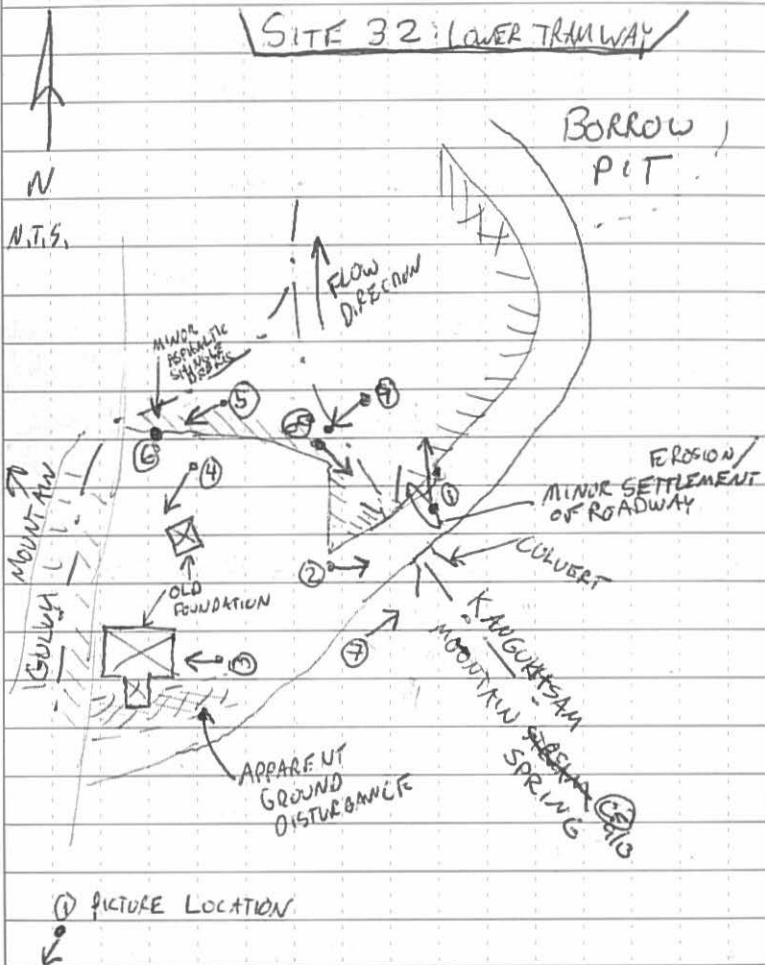 SITE 32: LOWER TRAMWAY
BORROW
PIT
N
N.T.S.
FLOW
DIRECTION
MINOR
ASPHALTIC
SHINGLE
DEBRIS
5
9
8
6
4
1
MOUNTAIN
GULLY
EROSION/
MINOR SETTLEMENT
OF ROADWAY
2
CULVERT
OLD
FOUNDATION
7
3
KANGUKHSAM
MOUNTAIN STREAM
SPRING
APPARENT
GROUND
DISTURBANCE
1 PICTURE LOCATION